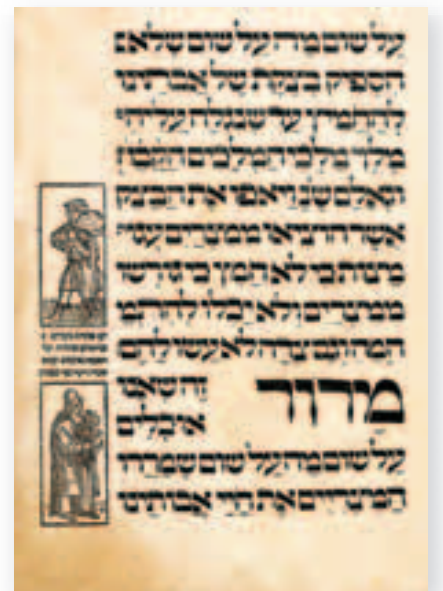 על שום מה על שום שלא
הספיק בצקת של אבותינו
להחמיץ עד שנגלה עליהי
מלך מלכי המלכים הקבה
וגאלם שנ ויאפו את הבצק
אשר הוציאו ממצרים עגו
מצות כי לא חמץ כי גורשו
ממצרים ולא יכלו להתמ
המה וגם צדה לא עשו להם
מרור זה שאנו
אוכלים
על שום מה על שום שמררו
המצריים את חיי אבותינו